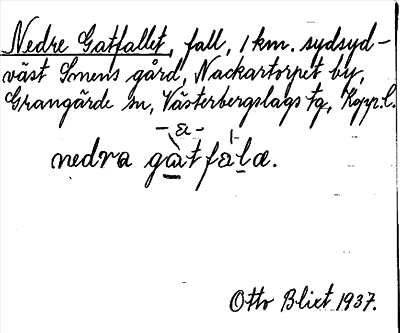 Nedre Gatfallet, fall, 1 km. sydsyd-
väst Smens gård, Nackartorpet by,
Grangärde sn, Västerbergslags tg, Kopp. l.
nedra gatfalæ.
Otto Blixt 1937.